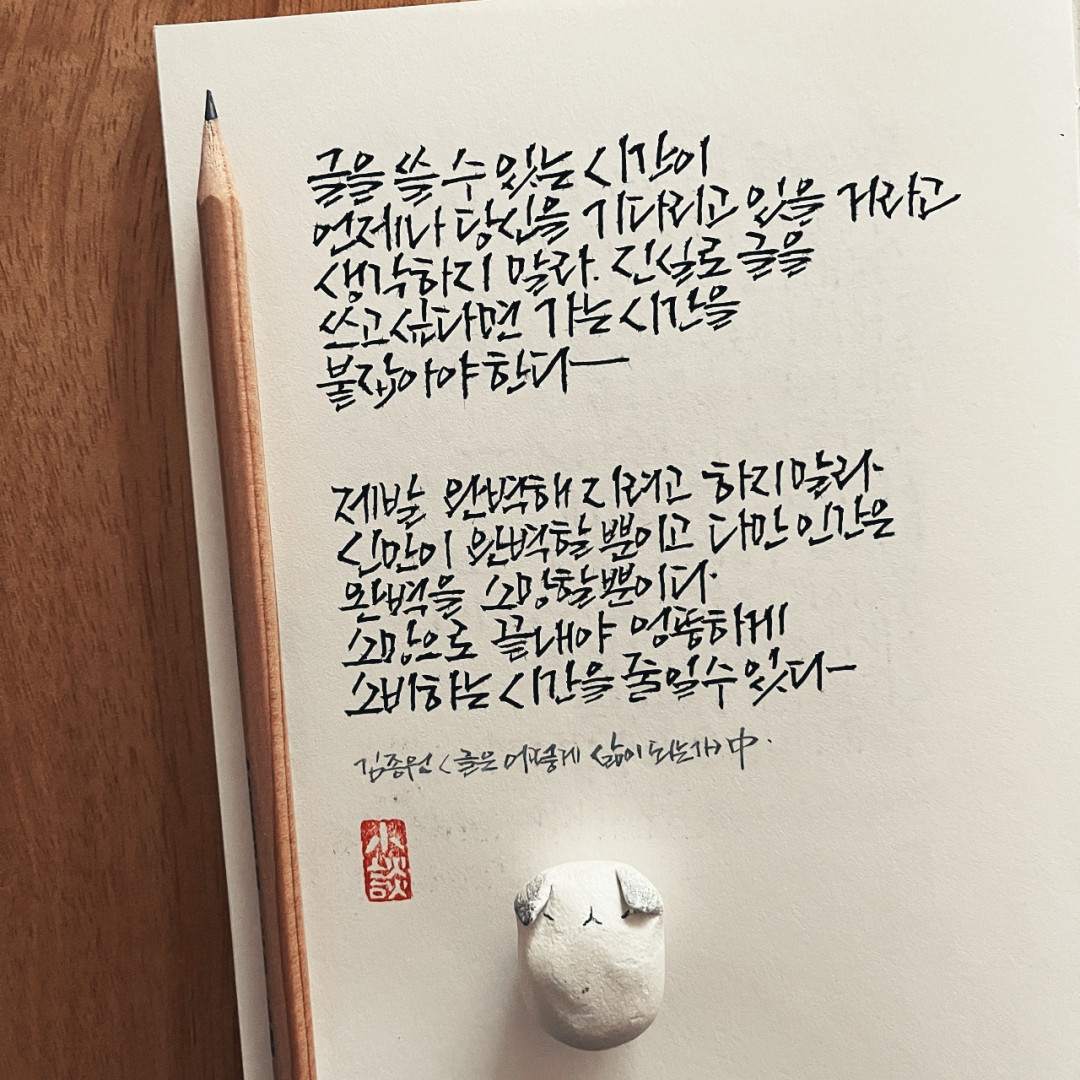 글을 쓸 수 있는 시간이
언제나 당신을 기다리고 있을 거라고
생각하지 말라. 진실로 글을
쓰고 싶다면 가는 시간을
붙잡아야 한다
제발 완벽해 지려고 하지말라.
신만이 완벽할 뿐이고 다만 인간은
완벽을 소망할뿐이다.
소망으로 끝내야 엉뚱하게
소비하는 시간을 줄일수 있다
김종원 <글은 어떻게 삶이 되는가> 中.
小談